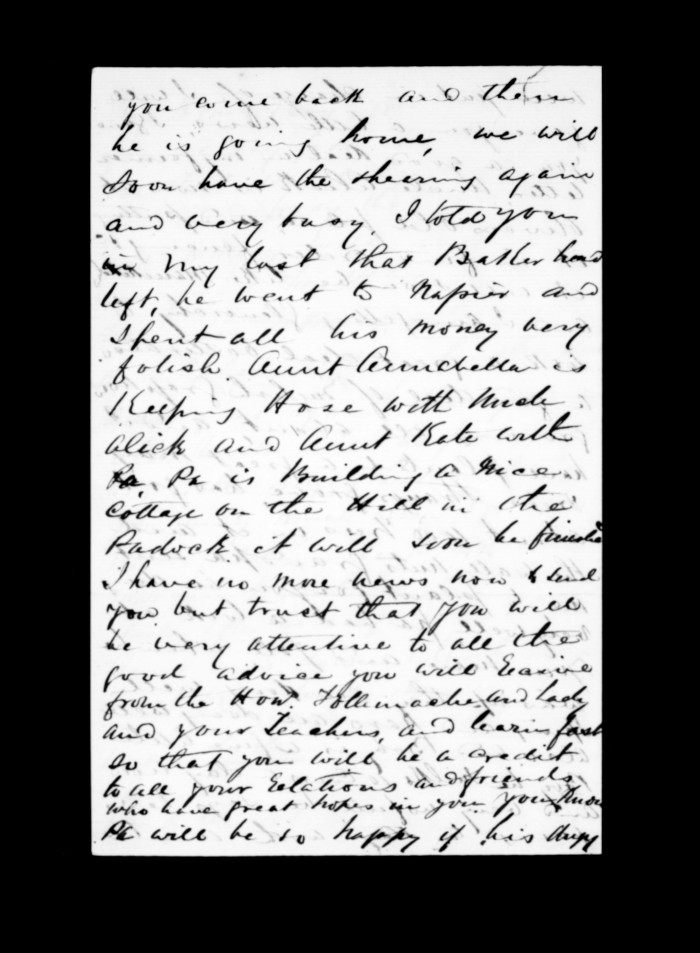 you come back and then
he is going home, we will
soon have the shearing again
and very busy. I told you
in my last that Barker had
left, he went to Napier and
spent all his money very
folish. Aunt Annabella is
Keeping Hose with Uncle
Alick and Aunt Kate with
Pa, Pa is Building a Nice
Cottage on the Hill in the
Padock it will soon be finished
I have no more news now to send
you but trust that you will
be very attentive to all the
good advice you will
from the Hon. Tollemache and Lady
and your Teachers, and learn fast
so that you will be a credit
to all your Relations and friends
who have great hopes in you your
Pa will be so happy if his